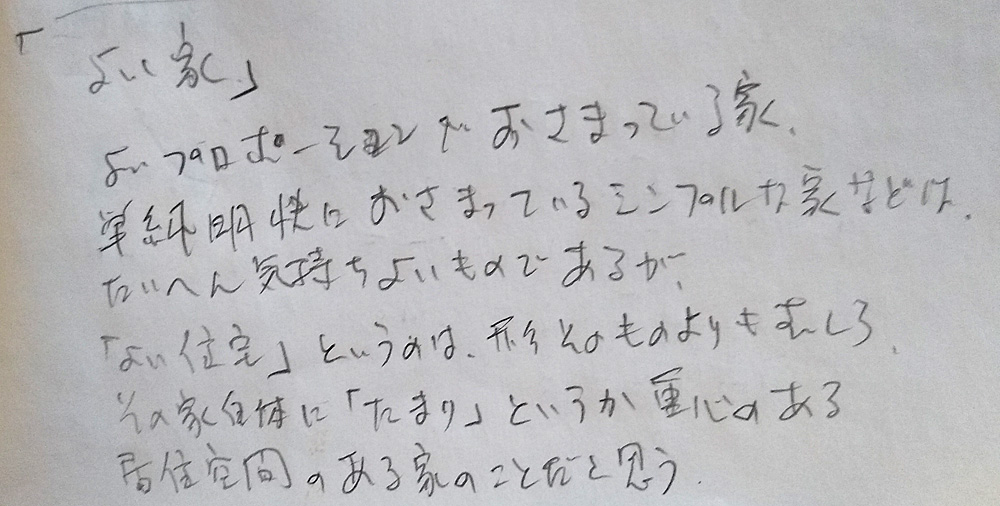 「よい家」
よいプロポーションでおさまっている家、
単純明快におさまっているシンプルな家などは、
たいへん気持ちよいものであるが、
「よい住宅」というのは、形そのものよりもむしろ、
その家自体に「たまり」というか重心のある
居住空間のある家のことだと思う.